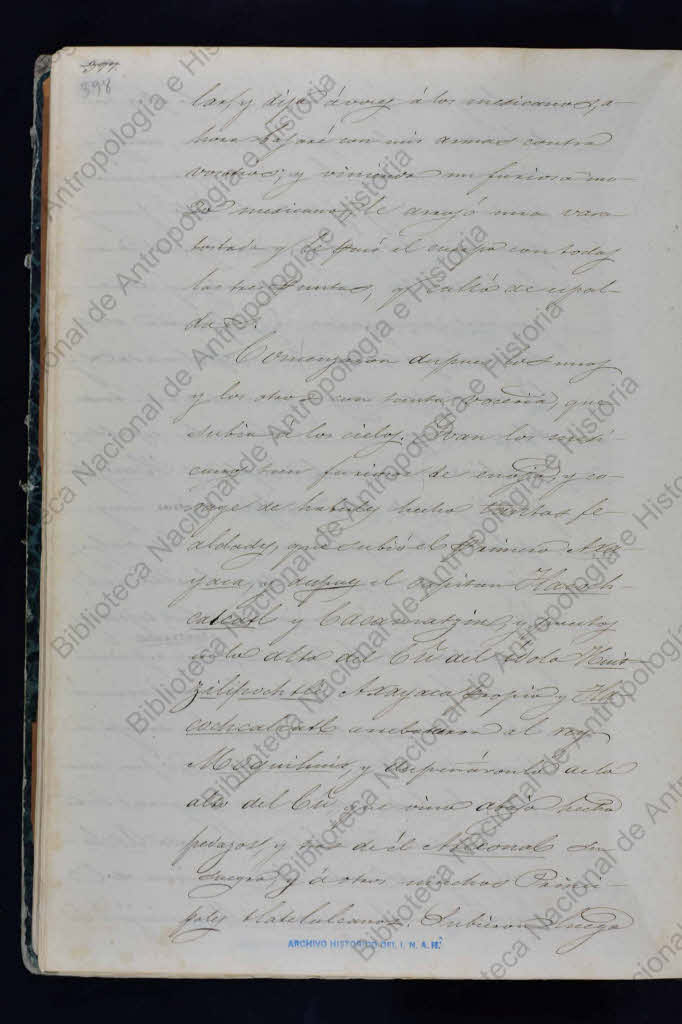 377.
398
lar, y dijo á voces á los mexicanos, a-
hora bajaré con mis armas contra
vosotros; y viniendo un furioso mo-
zo mexicano, le arrojó una vara
tostada y le pasó el cuerpo con todas
las tres puntas, y salió de espal-
das.
Comenzaron despues los unos
y los otros con tanta vocería, que
subia á los cielos. Ivan los mexi-
canos tan furiosos de enojo, y co-
rage de haberles hecho tantas fe-
aldades, que subió el primero Axa-
yaca, y despues el capitan
calcatl y Cacamatzin, y puestos
en lo alto del Cú del ídolo Huit-
zilipochtli Axayaca propio y Tla-
cochcalcatl arrebataron al rey
Moquihuix, y despeñáronlo de lo
alto del Cú, que vino abajo hecho
pedazos, y tras de él su
suegro, y á otros muchos Princi-
pales tlatelulcanos. Subieron luego
ARCHIVO HISTORICO DEL I. N. A. H.
Biblioteca Nacional de Antropología e Historia